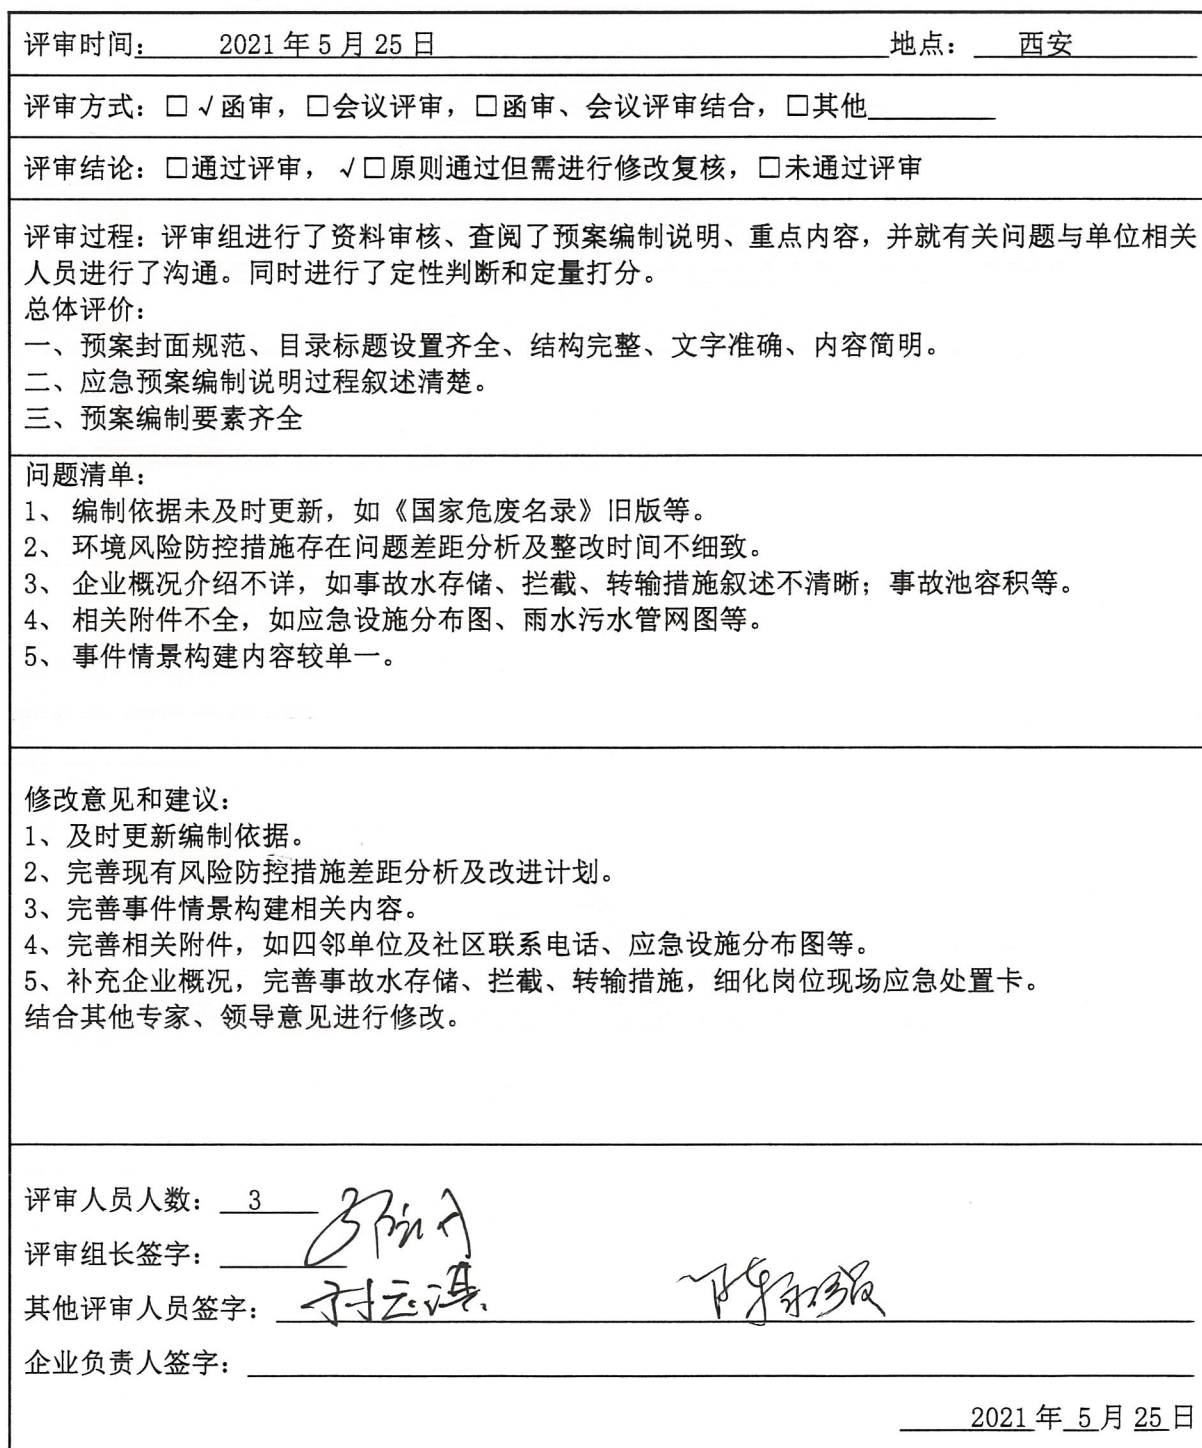 评审时间: 2021年5月25日 地点: 西安
评审方式:□√函审,□会议评审,□函审、会议评审结合,□其他
评审结论:□通过评审,√□原则通过但需进行修改复核,□未通过评审
评审过程:评审组进行了资料审核、查阅了预案编制说明、重点内容,并就有关问题与单位相关
人员进行了沟通。同时进行了定性判断和定量打分。
总体评价:
一、预案封面规范、目录标题设置齐全、结构完整、文字准确、内容简明。
二、应急预案编制说明过程叙述清楚。
三、预案编制要素齐全
问题清单:
1、 编制依据未及时更新,如《国家危废名录》旧版等。
2、 环境风险防控措施存在问题差距分析及整改时间不细致。
3、 企业概况介绍不详,如事故水存储、拦截、转输措施叙述不清晰;事故池容积等。
4、 相关附件不全,如应急设施分布图、雨水污水管网图等。
5、 事件情景构建内容较单一。
修改意见和建议:
1、及时更新编制依据。
2、完善现有风险防控措施差距分析及改进计划。
3、完善事件情景构建相关内容。
4、完善相关附件,如四邻单位及社区联系电话、应急设施分布图等。
5、补充企业概况,完善事故水存储、拦截、转输措施,细化岗位现场应急处置卡。
结合其他专家、领导意见进行修改。
评审人员人数: 3
评审组长签字:
其他评审人员签字:
企业负责人签字:
2021年 5月 25日